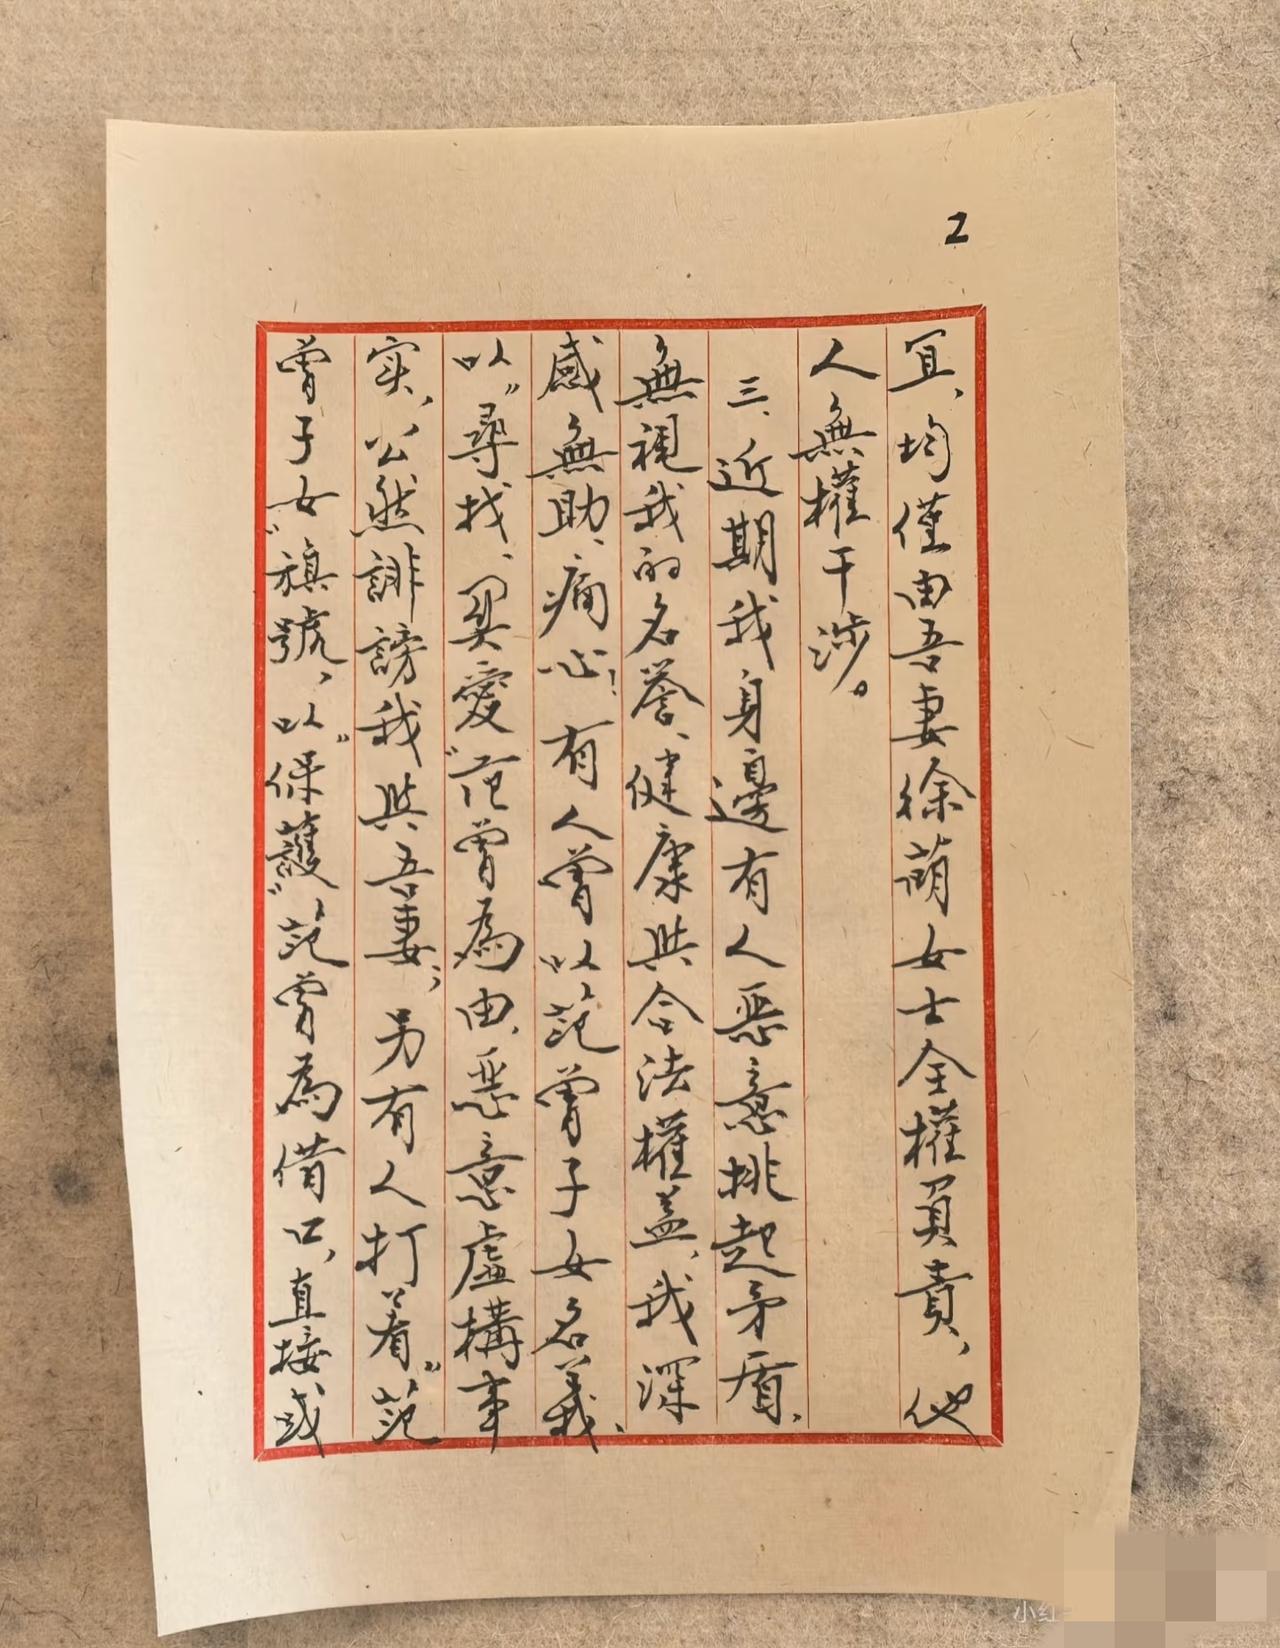 2
宜、均僅由吾妻徐萌女士全權負責，他
人無權干涉。
三、近期我身邊有人恶意挑起矛盾、
無視我的名誉、健康與合法權益、我深
感無助、痛心！有人曾以范曾子女名義、
以“尋找、関愛”范曾為由、恶意虛構事
实，公然誹謗我與吾妻；另有人打着“范
曾子女”旗號，以“保護”范曾為借口，直接或
小红